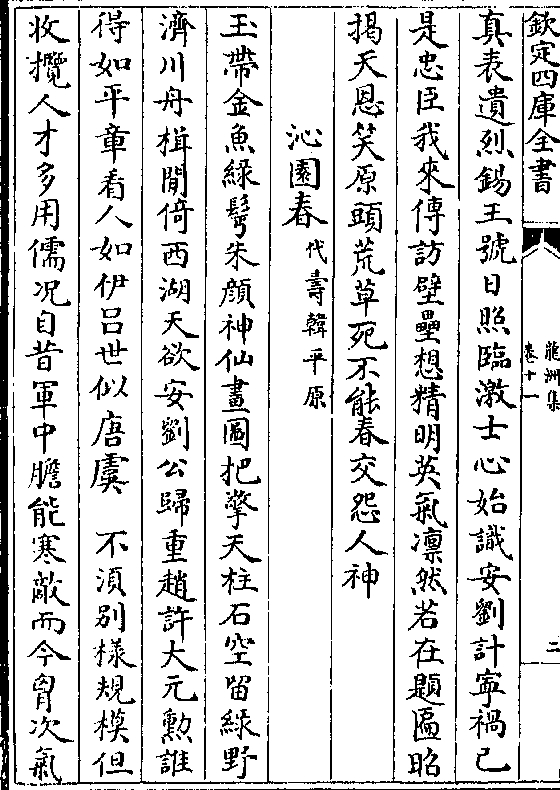 欽定四庫全書
龍洲集
卷十一
二
真表遺烈錫王號日照臨激士心始識安劉計寧禍已
是忠臣我來傳訪壁壘想精明英氣凛然若在題匾昭
揭天恩笑原頭荒草死不能春交怨人神
沁園春代壽韓平原
玉帶金魚緑鬢朱顔神仙畫圖把擎天柱石空留緑野
濟川舟楫閒倚西湖天欲安劉公歸重趙許大元勲誰
得如平章看人如伊吕世似唐虞　不須别様規模但
收攬人才多用儒况自昔軍中膽能寒敵而今胷次氣